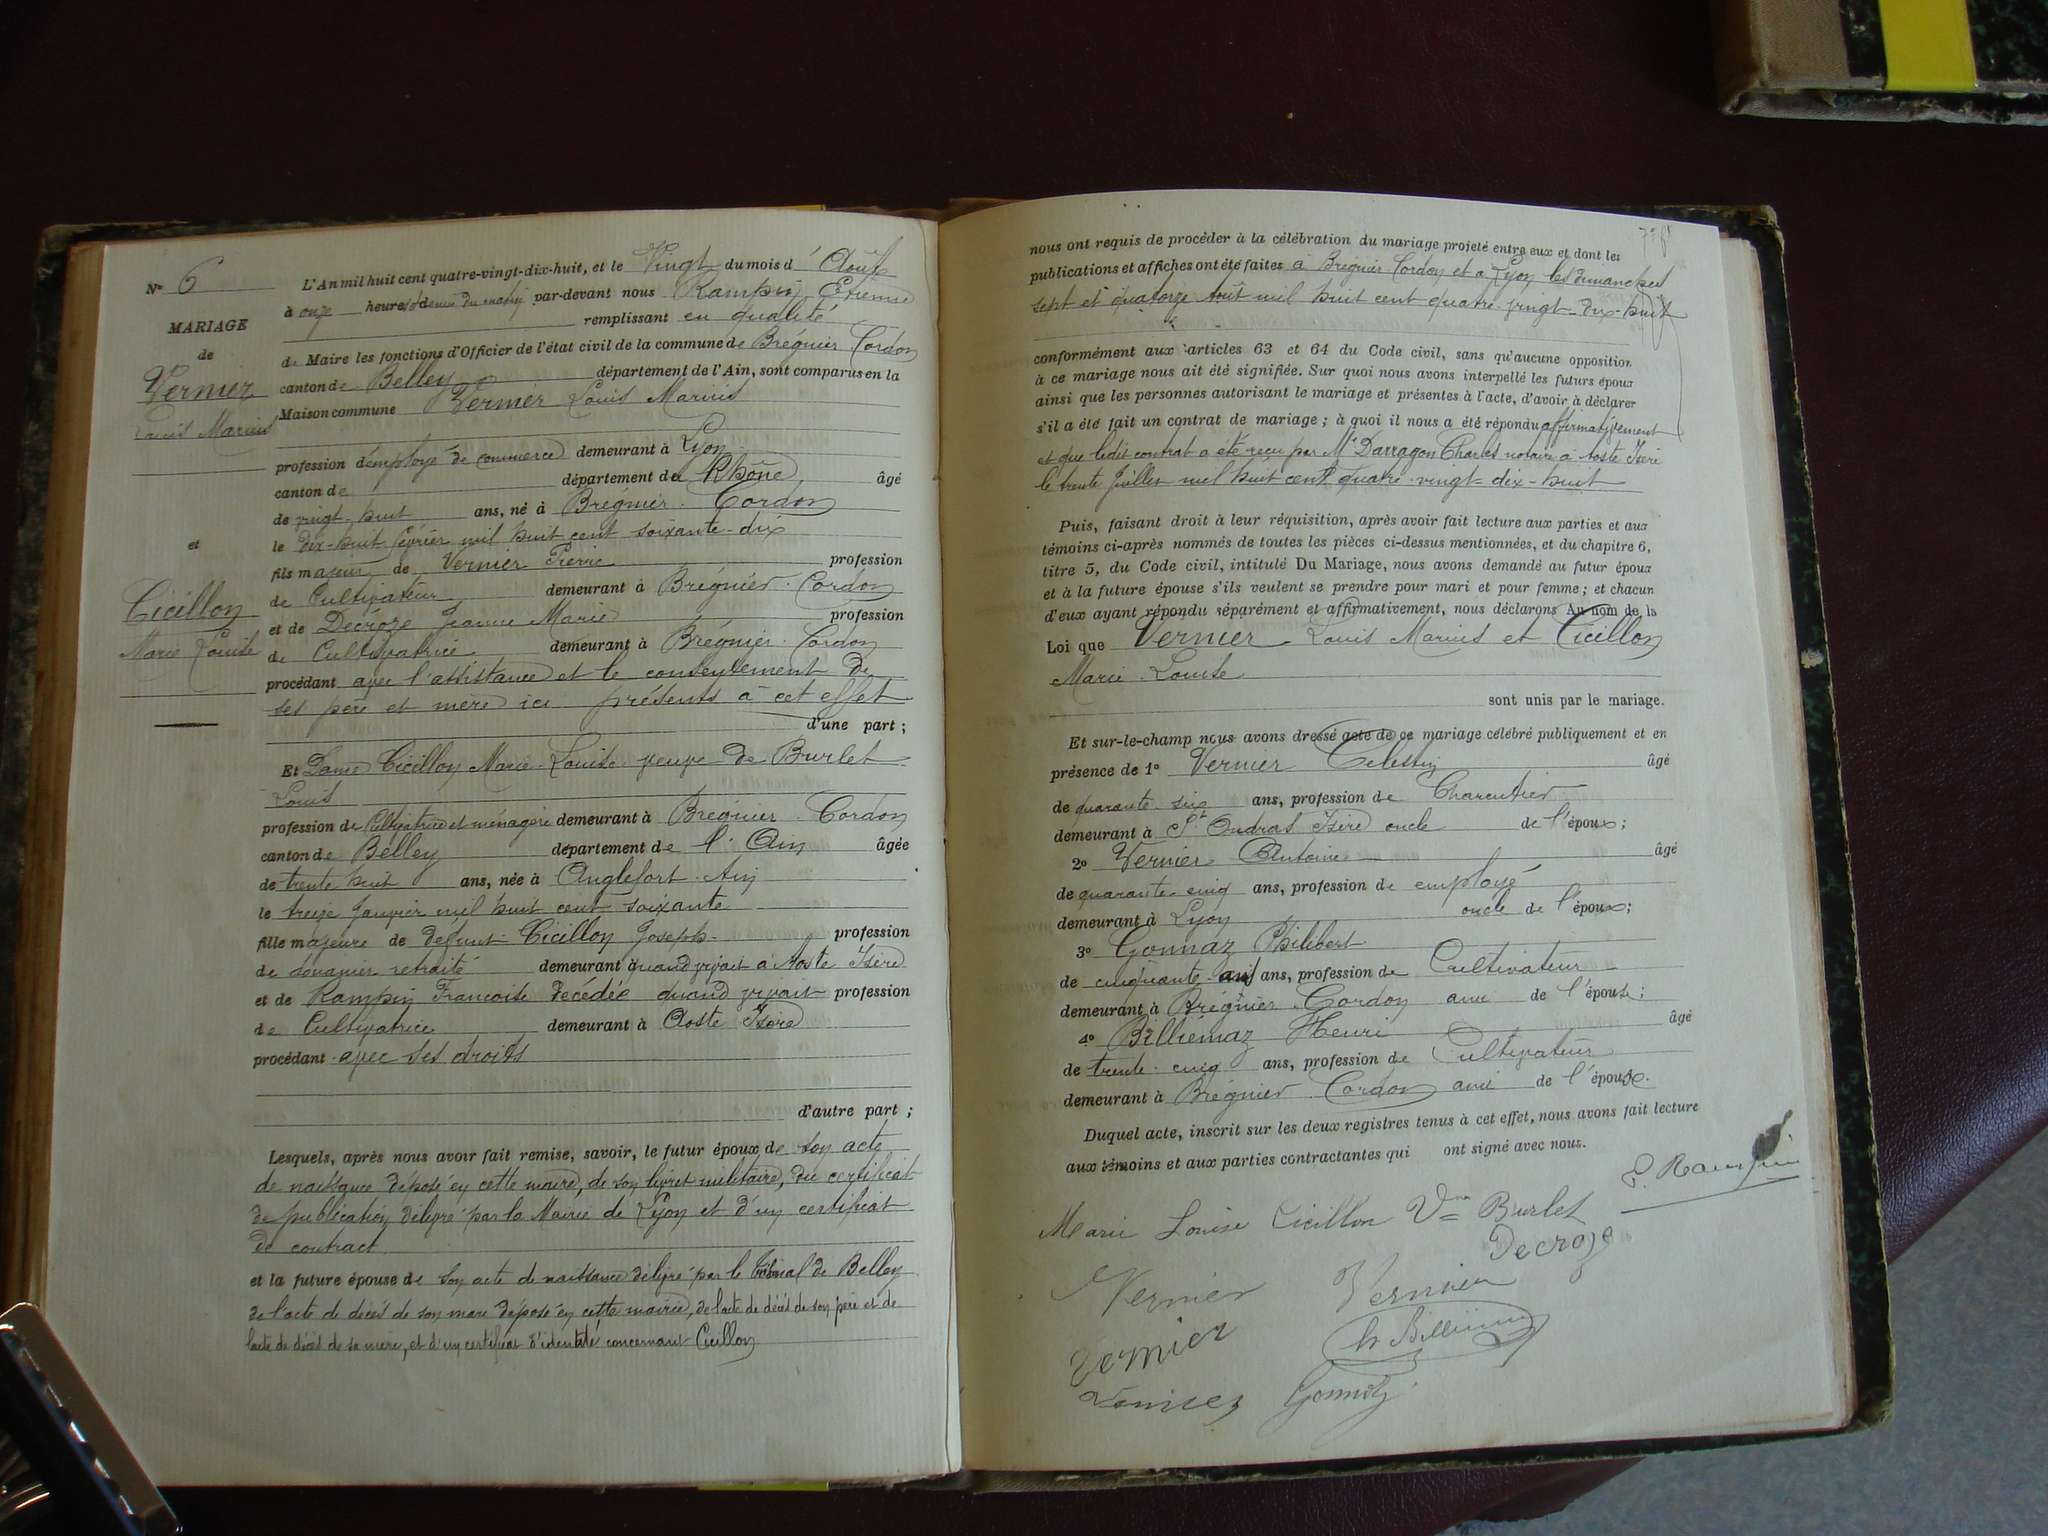 N° 6
MARIAGE
de
Vernier
Louis Marius
et
Cicillon
Marie Louise
L'An mil huit cent quatre-vingt-dix-huit, et le Vingt du mois d'Août
à onze heures du matin par-devant nous Rampin Etienne
remplissant en qualité
de Maire les fonctions d'Officier de l'état civil de la commune de Brégnier Cordon
canton de Belley département de l'Ain, sont comparus en la
Maison commune Vernier Louis Marius
profession d'employé de commerce demeurant à Lyon
canton de département du Rhône âgé
de vingt-huit ans, né à Brégnier-Cordon
le dix-huit février mil huit cent soixante-dix
fils majeur de Vernier Pierre profession
de Cultivateur demeurant à Brégnier-Cordon
et de Décroze Jeanne Marie profession
de Cultivatrice demeurant à Brégnier-Cordon
procédant avec l'assistance et le consentement de
ses père et mère ici présents à cet effet
d'une part ;
Et Dame Cicillon Marie-Louise veuve de Burlet
Louis
profession de Cultivatrice et ménagère demeurant à Brégnier-Cordon
canton de Belley département de l'Ain âgée
de trente huit ans, née à Anglefort-Ain
le treize Janvier mil huit cent soixante
fille majeure de defunt Cicillon Joseph profession
de douanier retraité demeurant quand vivait à Aoste Isère
et de Rampin Francoise décédée quand vivait profession
de Cultivatrice demeurant à Aoste Isère
procédant avec ses droits
d'autre part ;
Lesquels, après nous avoir fait remise, savoir, le futur époux de son acte
de naissance déposé en cette mairie, de son livret militaire, du certificat
de publication délivré par la Mairie de Lyon et d'un certificat
de contract
et la future épouse de son acte de naissance délivré par le tribunal de Belley
de l'acte de décès de son mari déposé en cette mairie, de l'acte de décès de son père et de
l'acte de décès de sa mère, et d'un certificat d'identité concernant Cicillon
nous ont requis de procéder à la célébration du mariage projeté entre eux et dont les
publications et affiches ont été faites à Brégnier Cordon et à Lyon les dimanches
sept et quatorze Août mil huit cent quatre-vingt-dix-huit
conformément aux articles 63 et 64 du Code civil, sans qu'aucune opposition
à ce mariage nous ait été signifiée. Sur quoi nous avons interpellé les futurs époux
ainsi que les personnes autorisant le mariage et présentes à l'acte, d'avoir à déclarer
s'il a été fait un contrat de mariage ; à quoi il nous a été répondu affirmativement
et que ledit contrat a été reçu par Me Darragon Charles notaire à Aoste Isère
le trente Juillet mil huit cent quatre-vingt-dix-huit
Puis, faisant droit à leur réquisition, après avoir fait lecture aux parties et aux
témoins ci-après nommés de toutes les pièces ci-dessus mentionnées, et du chapitre 6,
titre 5, du Code civil, intitulé Du Mariage, nous avons demandé au futur époux
et à la future épouse s'ils veulent se prendre pour mari et pour femme ; et chacun
d'eux ayant répondu séparément et affirmativement, nous déclarons Au nom de la
Loi que Vernier Louis Marius et Cicillon
Marie-Louise
sont unis par le mariage.
Et sur-le-champ nous avons dressé acte de ce mariage célébré publiquement et en
présence de 1° Vernier Célestin âgé
de quarante-six ans, profession de Charcutier
demeurant à St Ondras Isère oncle de l'époux ;
2° Vernier Antoine âgé
de quarante-cinq ans, profession de employé
demeurant à Lyon oncle de l'époux ;
3° Gonnaz Philibert
de cinquante ans, profession de Cultivateur
demeurant à Brégnier-Cordon ami de l'épouse ;
4° Billiémaz Henri âgé
de trente-cinq ans, profession de Cultivateur
demeurant à Brégnier-Cordon ami de l'épouse.
Duquel acte, inscrit sur les deux registres tenus à cet effet, nous avons fait lecture
aux témoins et aux parties contractantes qui ont signé avec nous.
E. Rampin
Marie Louise Cicillon Vve Burlet
Decroze
Vernier Vernier
Vernier h Billiémaz
Vernier Gonnaz